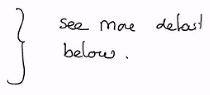 See more detail
below.